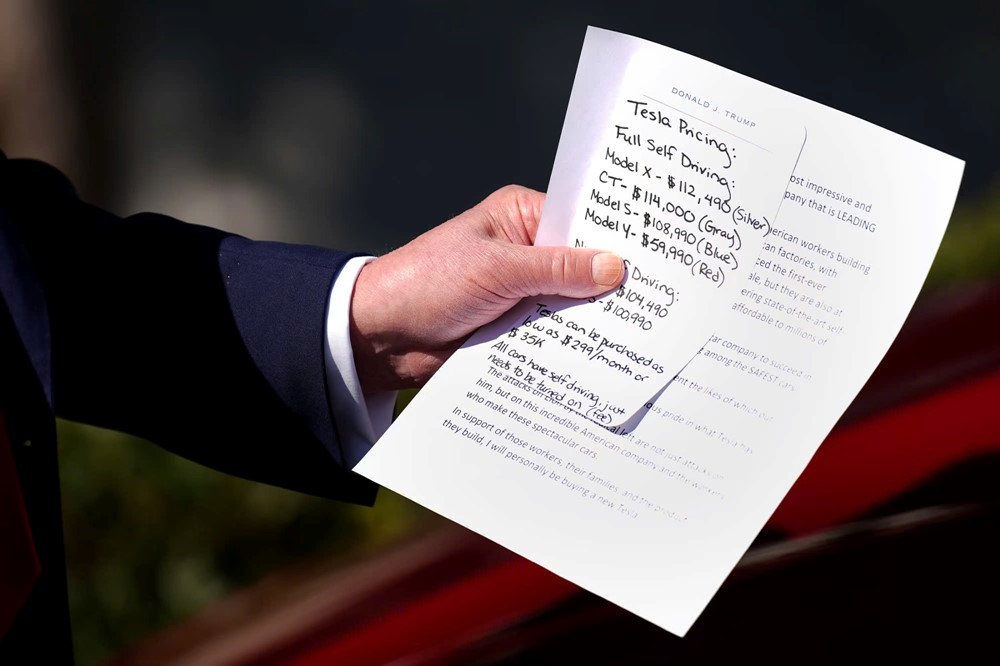 DONALD J. TRUMP
Tesla Pricing:
Full Self Driving:
Model X - $112,490 (Silver)
CT - $114,000 (Gray)
Model S - $108,990 (Blue)
Model Y - $59,990 (Red)
Driving:
$104,490
- $100,990
Teslas can be purchased as
low as $299/month or
$35K
All cars have self driving, just
needs to be turned on (fee)
ost impressive and
pany that is LEADING
erican workers building
an factories, with
ced the first-ever
ale, but they are also at
ering state-of-the-art self
affordable to millions of
ar company to succeed in
t among the SAFEST cars
ent the likes of which our
ous pride in what Tesla has
The attacks on left are not just attacks
him, but on this incredible American company and the workers
who make these spectacular cars.
In support of those workers, their families, and the product
they build, I will personally be buying a new Tesla